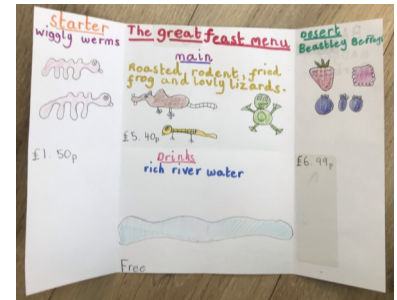 starter
wiggly werms
£1.50p
The great feast menu
main
Roasted, rodent, fried
frog and lovly lizards.
£5.40p
Drinks
rich river water
Free
Desert
Beastley Berrys
£6.99p